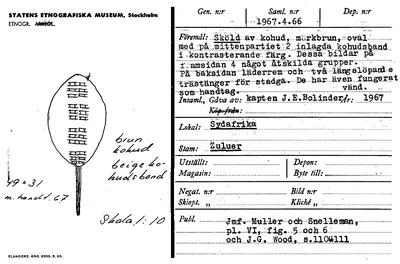 STATENS ETNOGRAFISKA MUSEUM, Stockholm
ETNOGR.
brun
kohud
beige ko-
hudsband
49 × 31
m. handt. 67
Skala 1:10
ELANDERS, GBG
Gen. nr
Saml. nr
Dep. nr
1967.4.66
Föremål: Sköld av kohud, mörkbrun, oval
med på mittenpartiet 2 inlagda kohudsband
i kontrasterande färg. Dessa bildar på
framsidan 4 något åtskilda grupper.
På baksidan läderrem och två längslöpande
trästänger för stadga. De har även fungerat
som handtag.
vänd.
Insaml., Gåva av: kapten J.E.Bolinder, år: 1967
Köp från:
Lokal: Sydafrika
Stam: Zuluer
Utställt:
Depon:
Magasin:
Byte till:
Negat. nr
Bild nr
Skiopt. »
Kliché »
Publ.
Jmf. Muller och Snelleman,
pl. VI, fig. 5 och 6
och J.G. Wood, s.110